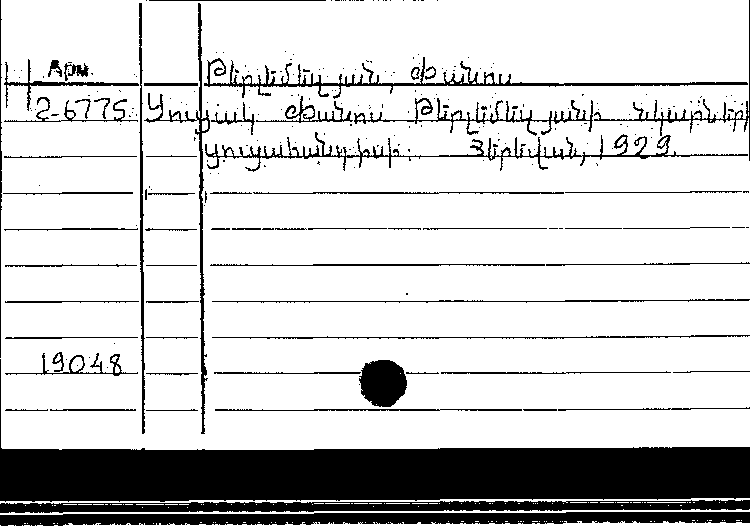 Арм.
Թերլեմեզյան, Փանոս
2-6775 Ցուցակ Փանոս Թերլեմեզյանի նկարների
ցուցահանդիսի. Յերեվան, 1929.
19048